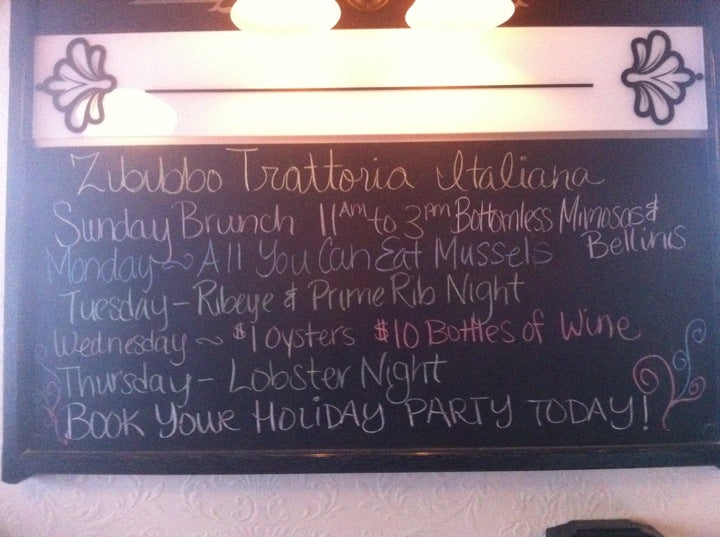 Zibibbo Trattoria Italiana
Sunday Brunch 11AM to 3pm Bottomless Mimosas &
Bellinis
Monday ~ All You Can Eat Mussels
Tuesday - Ribeye & Prime Rib Night
Wednesday ~ $1 oysters $10 Bottles of Wine
Thursday - Lobster Night
BOOK YOUR HOLIDAY PARTY TODAY!